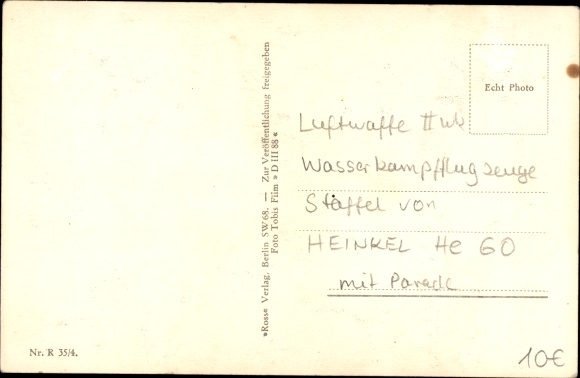 »Ross« Verlag, Berlin SW 68. — Zur Veröffentlichung freigegeben
Foto Tobis Film »D III 88«
Echt Photo
Luftwaffe II wk
Wasserkampfflugzeuge
Staffel von
HEINKEL He 60
mit Parade
Nr. R 35/4.
10€